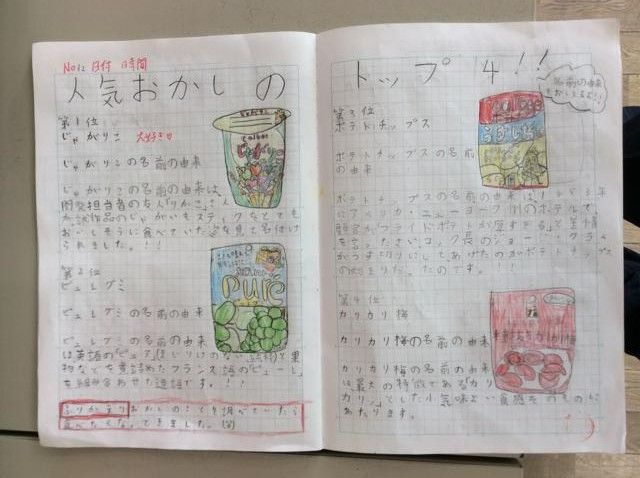 No12 日付 時間
人気おかしの
第1位
じゃがりこ 大好き♡
じゃがりこの名前の由来
じゃがりこの名前の由来は、
開発担当者の友人「りかこ」さん
が試作品のじゃがいもスティックをとても
おいしそうに食べていた姿を見て名付け
られました。!!
calbee
じゃがりこ
第2位
ピュレグミ
ピュレグミの名前の由来
ピュレグミの名前の由来
は英語の「ピュア」(まじりけのない、純粋)と果
物などを煮詰めたフランス語の「ピューレ」
を組み合わせた造語です。!!
puré
ふりかえり おかしのことを調べていたら
食べたくなってきました。(笑)
トップ4!!
名前の由来
第3位
ポテトチップス
ポテトチップスの名前
の由来
Calbee
うすしお
ポテトチップスの名前の由来は、
にアメリカ・ニューヨーク州のホテルで、
顧客がフライドポテトが厚すぎると苦情
を言ったさい、コック長のジョージ・クラム
がうす切りにしてあげたのがポテトチップス
の始まりだったのです。!!
第4位
カリカリ梅
カリカリ梅の名前の由来
カリカリ梅の名前の由来
は最大の特徴である「カリ
カリ」とした小気味よい食感そのものに
あたります。
カリカリ梅